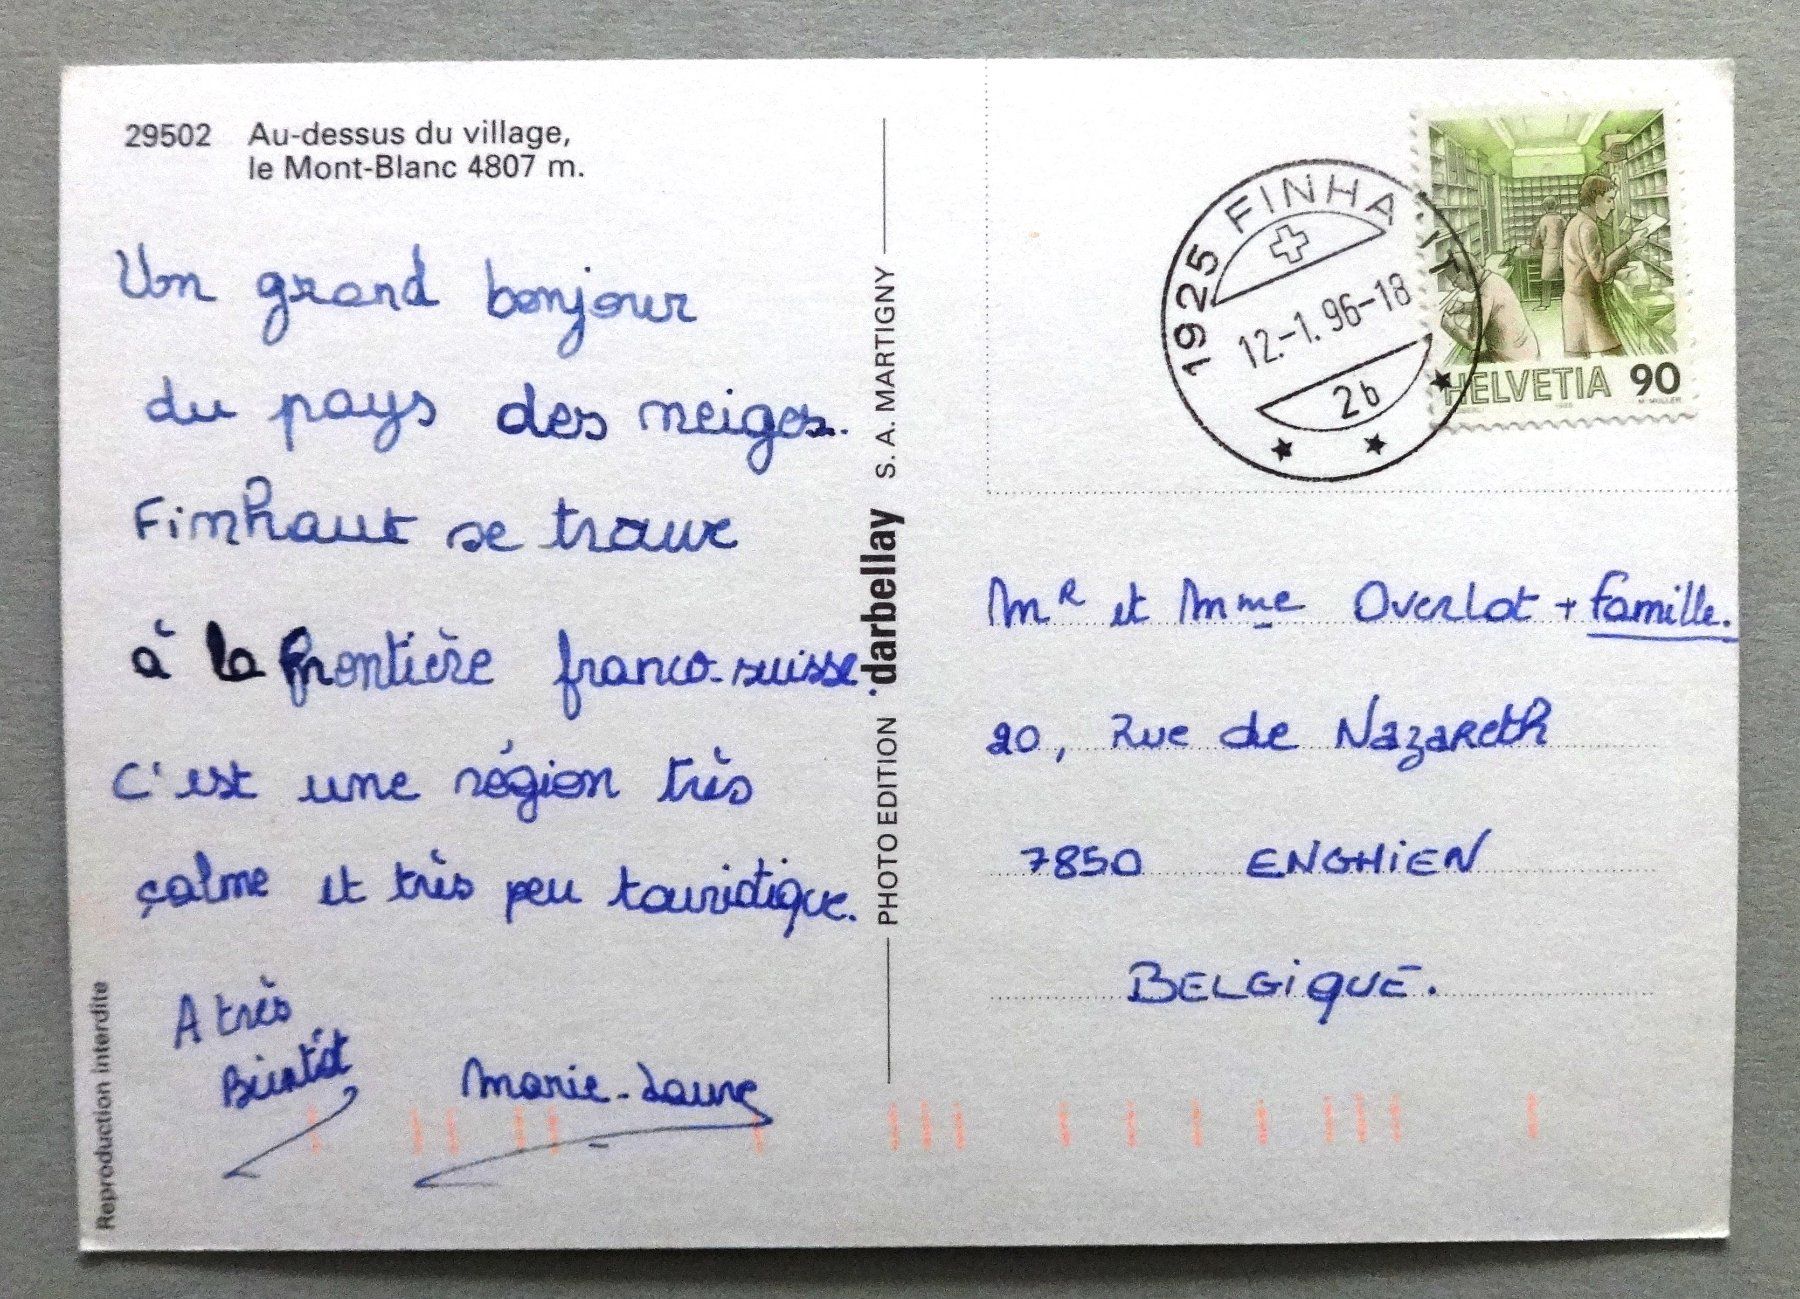 29502 Au-dessus du village,
le Mont-Blanc 4807 m.
Un grand bonjour
du pays des neiges.
Finhaut se trouve
à la frontière franco-suisse.
C'est une région très
çalme et très peu touristique.
A très
Bientôt
Marie-Laure
Reproduction interdite
PHOTO EDITION darbellay S. A. MARTIGNY
1925 FINHAUT
12.-1.96-18
2b
HELVETIA 90
Mr et Mme Overlot + famille.
20, Rue de Nazareth
7850 ENGHiEN
BELGiQUE.